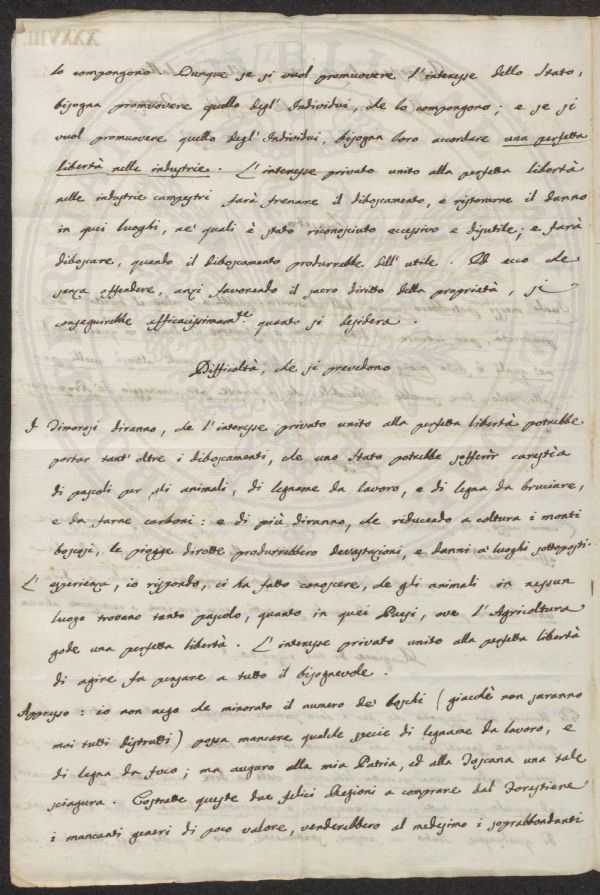 lo compongono Dunque se si vuol promuovere l'interesse dello Stato,
bisogna promuovere quello degl'Individui, che lo compongono; e se si
vuol promuovere quello degl'Individui, bisogna loro accordare una perfetta
libertà nelle industrie. L'interesse privato unito alla perfetta libertà
nelle industrie campestri farà frenare il diboscamento, e ristorarne il danno
in quei luoghi, ne' quali è stato riconosciuto eccessivo e disutile; e farà
diboscare, quando il diboscamento produrrebbe dell'utile. Ed ecco che
senza offendere, anzi favorendo il sacro diritto della proprietà, si
conseguirebbe efficacissimamte. quanto si desidera.
Difficoltà, che si prevedono
I Timorosi diranno, che l'interesse privato unito alla perfetta libertà potrebbe
portar tant'oltre i diboscamenti, che uno Stato potrebbe soffrir carestia
di pascoli per gli animali, di legname da lavoro, e di legna da bruciare,
e da farne carboni: e di più diranno, che riducendo a coltura i monti
boscosi, le piogge dirotte produrrebbero devastazioni, e danni a' luoghi sottoposti.
L'esperienza, io rispondo, ci ha fatto conoscere, che gli animali in nessun
luogo trovano tanto pascolo, quanto in quei Paesi, ove l'Agricoltura
gode una perfetta libertà. L'interesse privato unito alla perfetta libertà
di agire fa pensare a tutto il bisognevole.
Appresso: io non nego che minorato il numero de' boschi (giacchè non saranno
mai tutti distrutti) possa mancare qualche specie di legname da lavoro, e
di legna da foco; ma auguro alla mia Patria, ed alla Toscana una tale
sciagura. Costrette queste due felici Regioni a comprare dal Forestiere
i mancanti generi di poco valore, venderebbero al medesimo i soprabbondanti
XXXVIII.